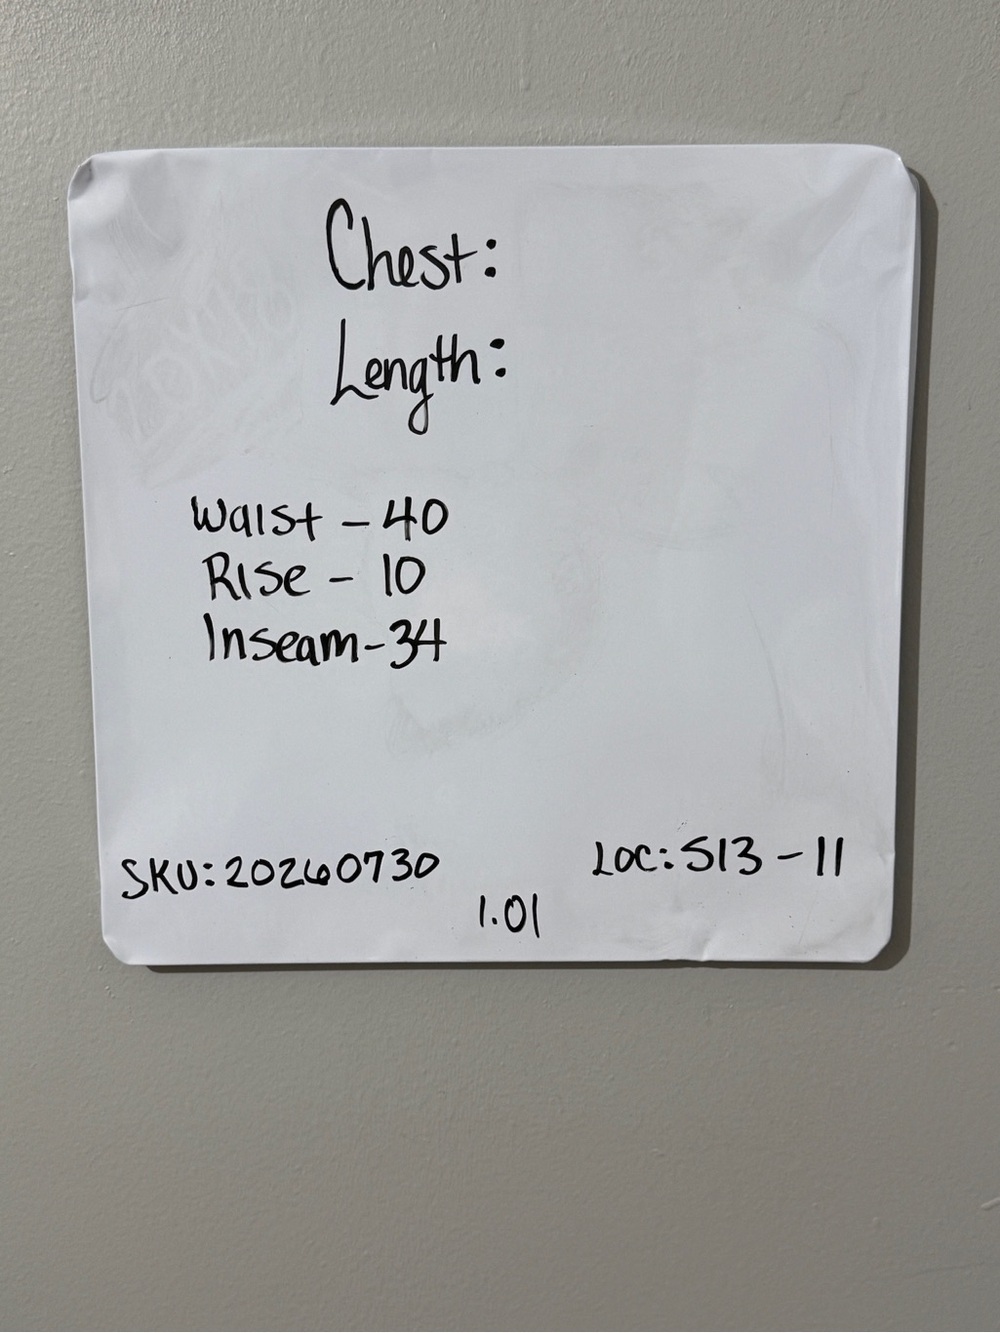 Chest:
Length:
Waist - 40
Rise - 10
Inseam - 34
SKU: 20260730
LOC: S13 - 11
1.01